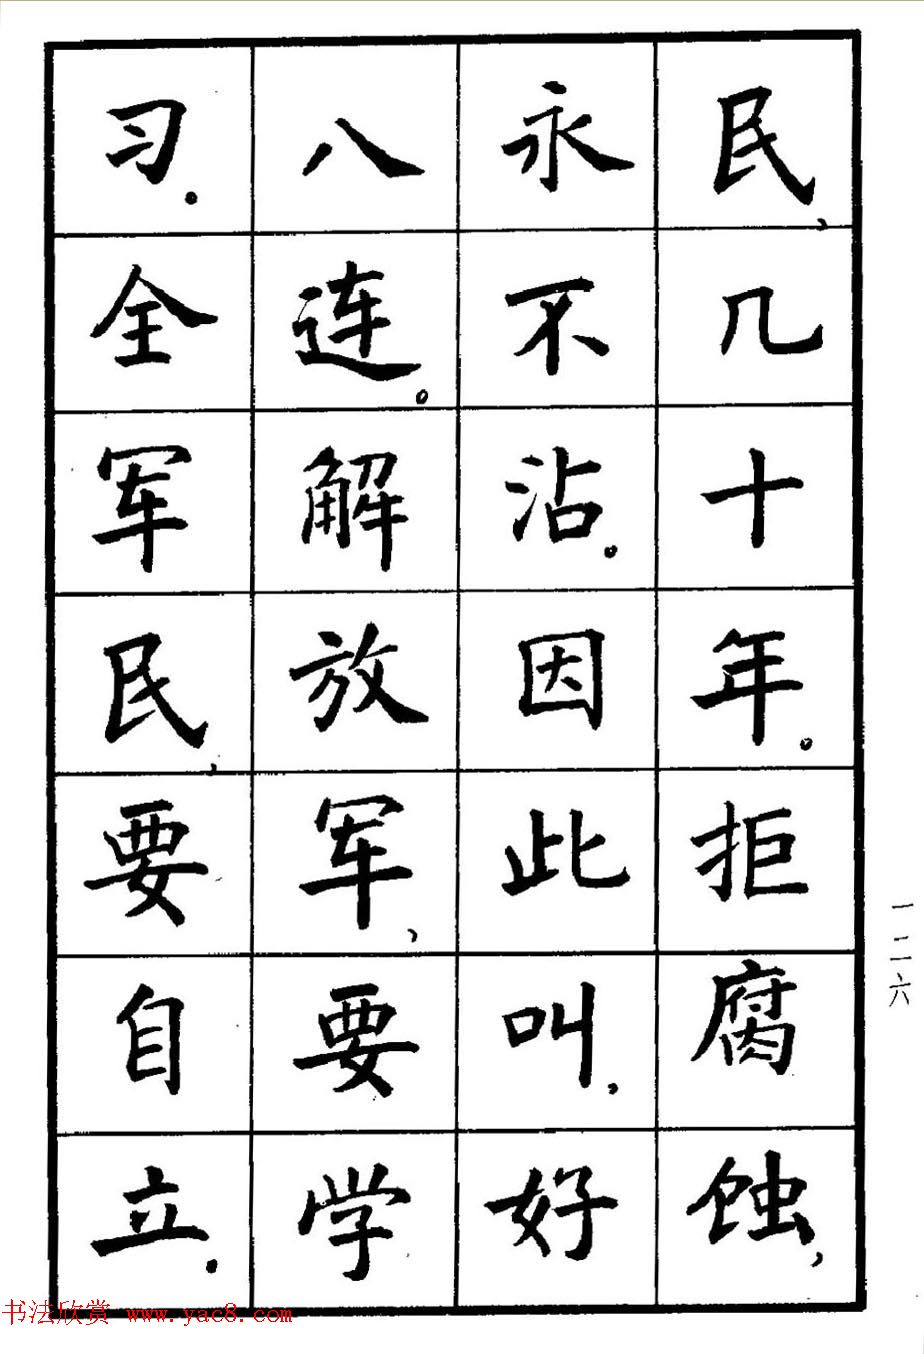 民，几十年。拒腐蚀，
永不沾。因此叫，好
八连。解放军，要学
习。全军民，要自立。
一二六
书法欣赏 www.yac8.com